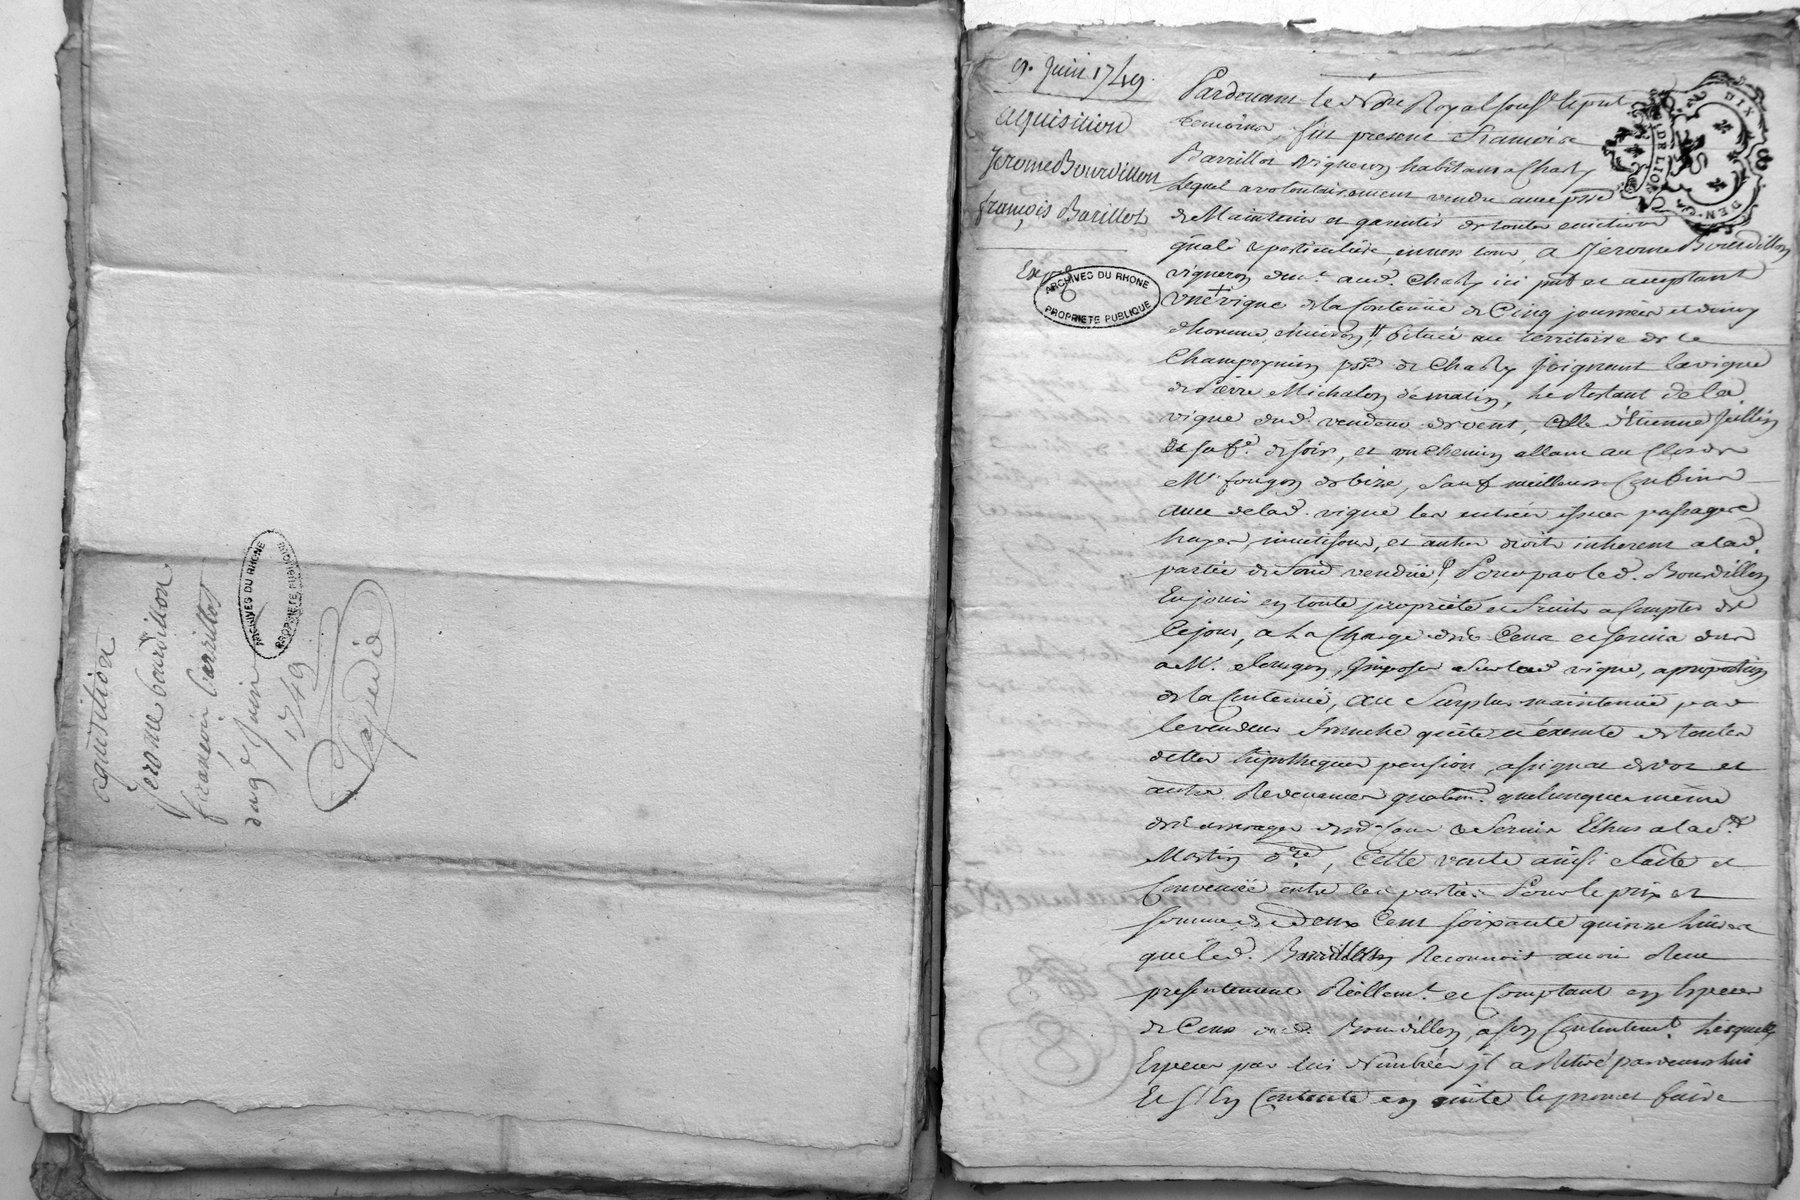 aquisition
Jerome bourdillon
francois barrillot
du 9e Juin
1749
ARCHIVES DU RHONE
PROPRIETE PUBLIQUE
9. Juin 1749.
acquisition
Jerome Bourdillon
françois Barillot
Exp.
ARCHIVES DU RHONE
PROPRIETE PUBLIQUE
DIX
DEN.
DE LION
Pardevant le Nore Royal sousé. et pnt
temoins, fut present Francois
Barrillot vigneron habitant a Charly
Lequel a volontairement vendu avec psse
de Maintenir et garentir de toutes evictions
gñale & particuliere, envers tous, a Jerome Bourdillon
vigneron dmt. aud. Charly ici pnt et acceptant
une vigne de la Contenüe de Cinq journées et demy
d'homme, situee au territoire de le
Champeynin psse de Charly Joignant la vigne
de Pierre Michalon de matin, le Restant de la
vigne dud. vendeur de vent, Celle d'Etienne Jullien
et sa fe. de soir, et un chemin allant au Clos de
Mr. fougon de bize, sauf meilleurs Confins
avec de lad. vigne les entrées issues passages
hayes, et autres droits inherent a lad.
partie de fond vendüe! Pour par led. Bourdillon
En jouir en toute propriété et fruits a Compter de
Ce jour, a la Charge des Cens et servis dus
a Mr. fougon, Imposés Sur lad. vigne, a proportion
de la Contenüe, au Surplus maintenue par
le vendeur franche quitte et exempte de toutes
dettes hipotheques pension, assignat de dot et
autre Redevances quelquonques même
des arrerages desd. Cens & Servis Echus a la St.
Martin dre, Cette vente ainsi faite et
Convenüe entre les parties Pour le prix et
somme de Deux Cent soixante quinze livres
que led. Barrillot Reconnoit avoir Reçue
presentement Réellemt. et Comptant en Especes
de Cours dud. Bourdillon, a son Contentemt. Lesquelles
Especes par lui Nombrées il a Retiré pardevers lui
Et s'En Contente en quitte et promet faire